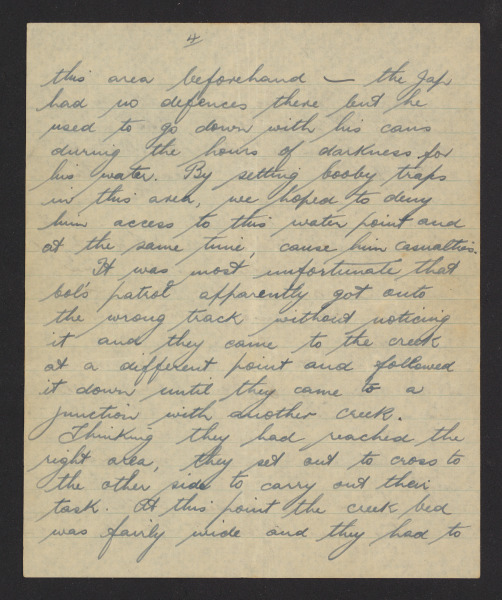 4
this area beforehand — the Jap
had no defences there but he
used to go down with his cans
during the hours of darkness for
his water. By setting booby traps
in this area, we hoped to deny
him access to this water point and
at the same time, cause him casualties.
It was most unfortunate that
Col's patrol apparently got onto
the wrong track without noticing
it and they came to the creek
at a different point and followed
it down until they came to a
junction with another creek.
Thinking they had reached the
right area, they set out to cross to
the other side to carry out their
task. At this point the creek bed
was fairly wide and they had to